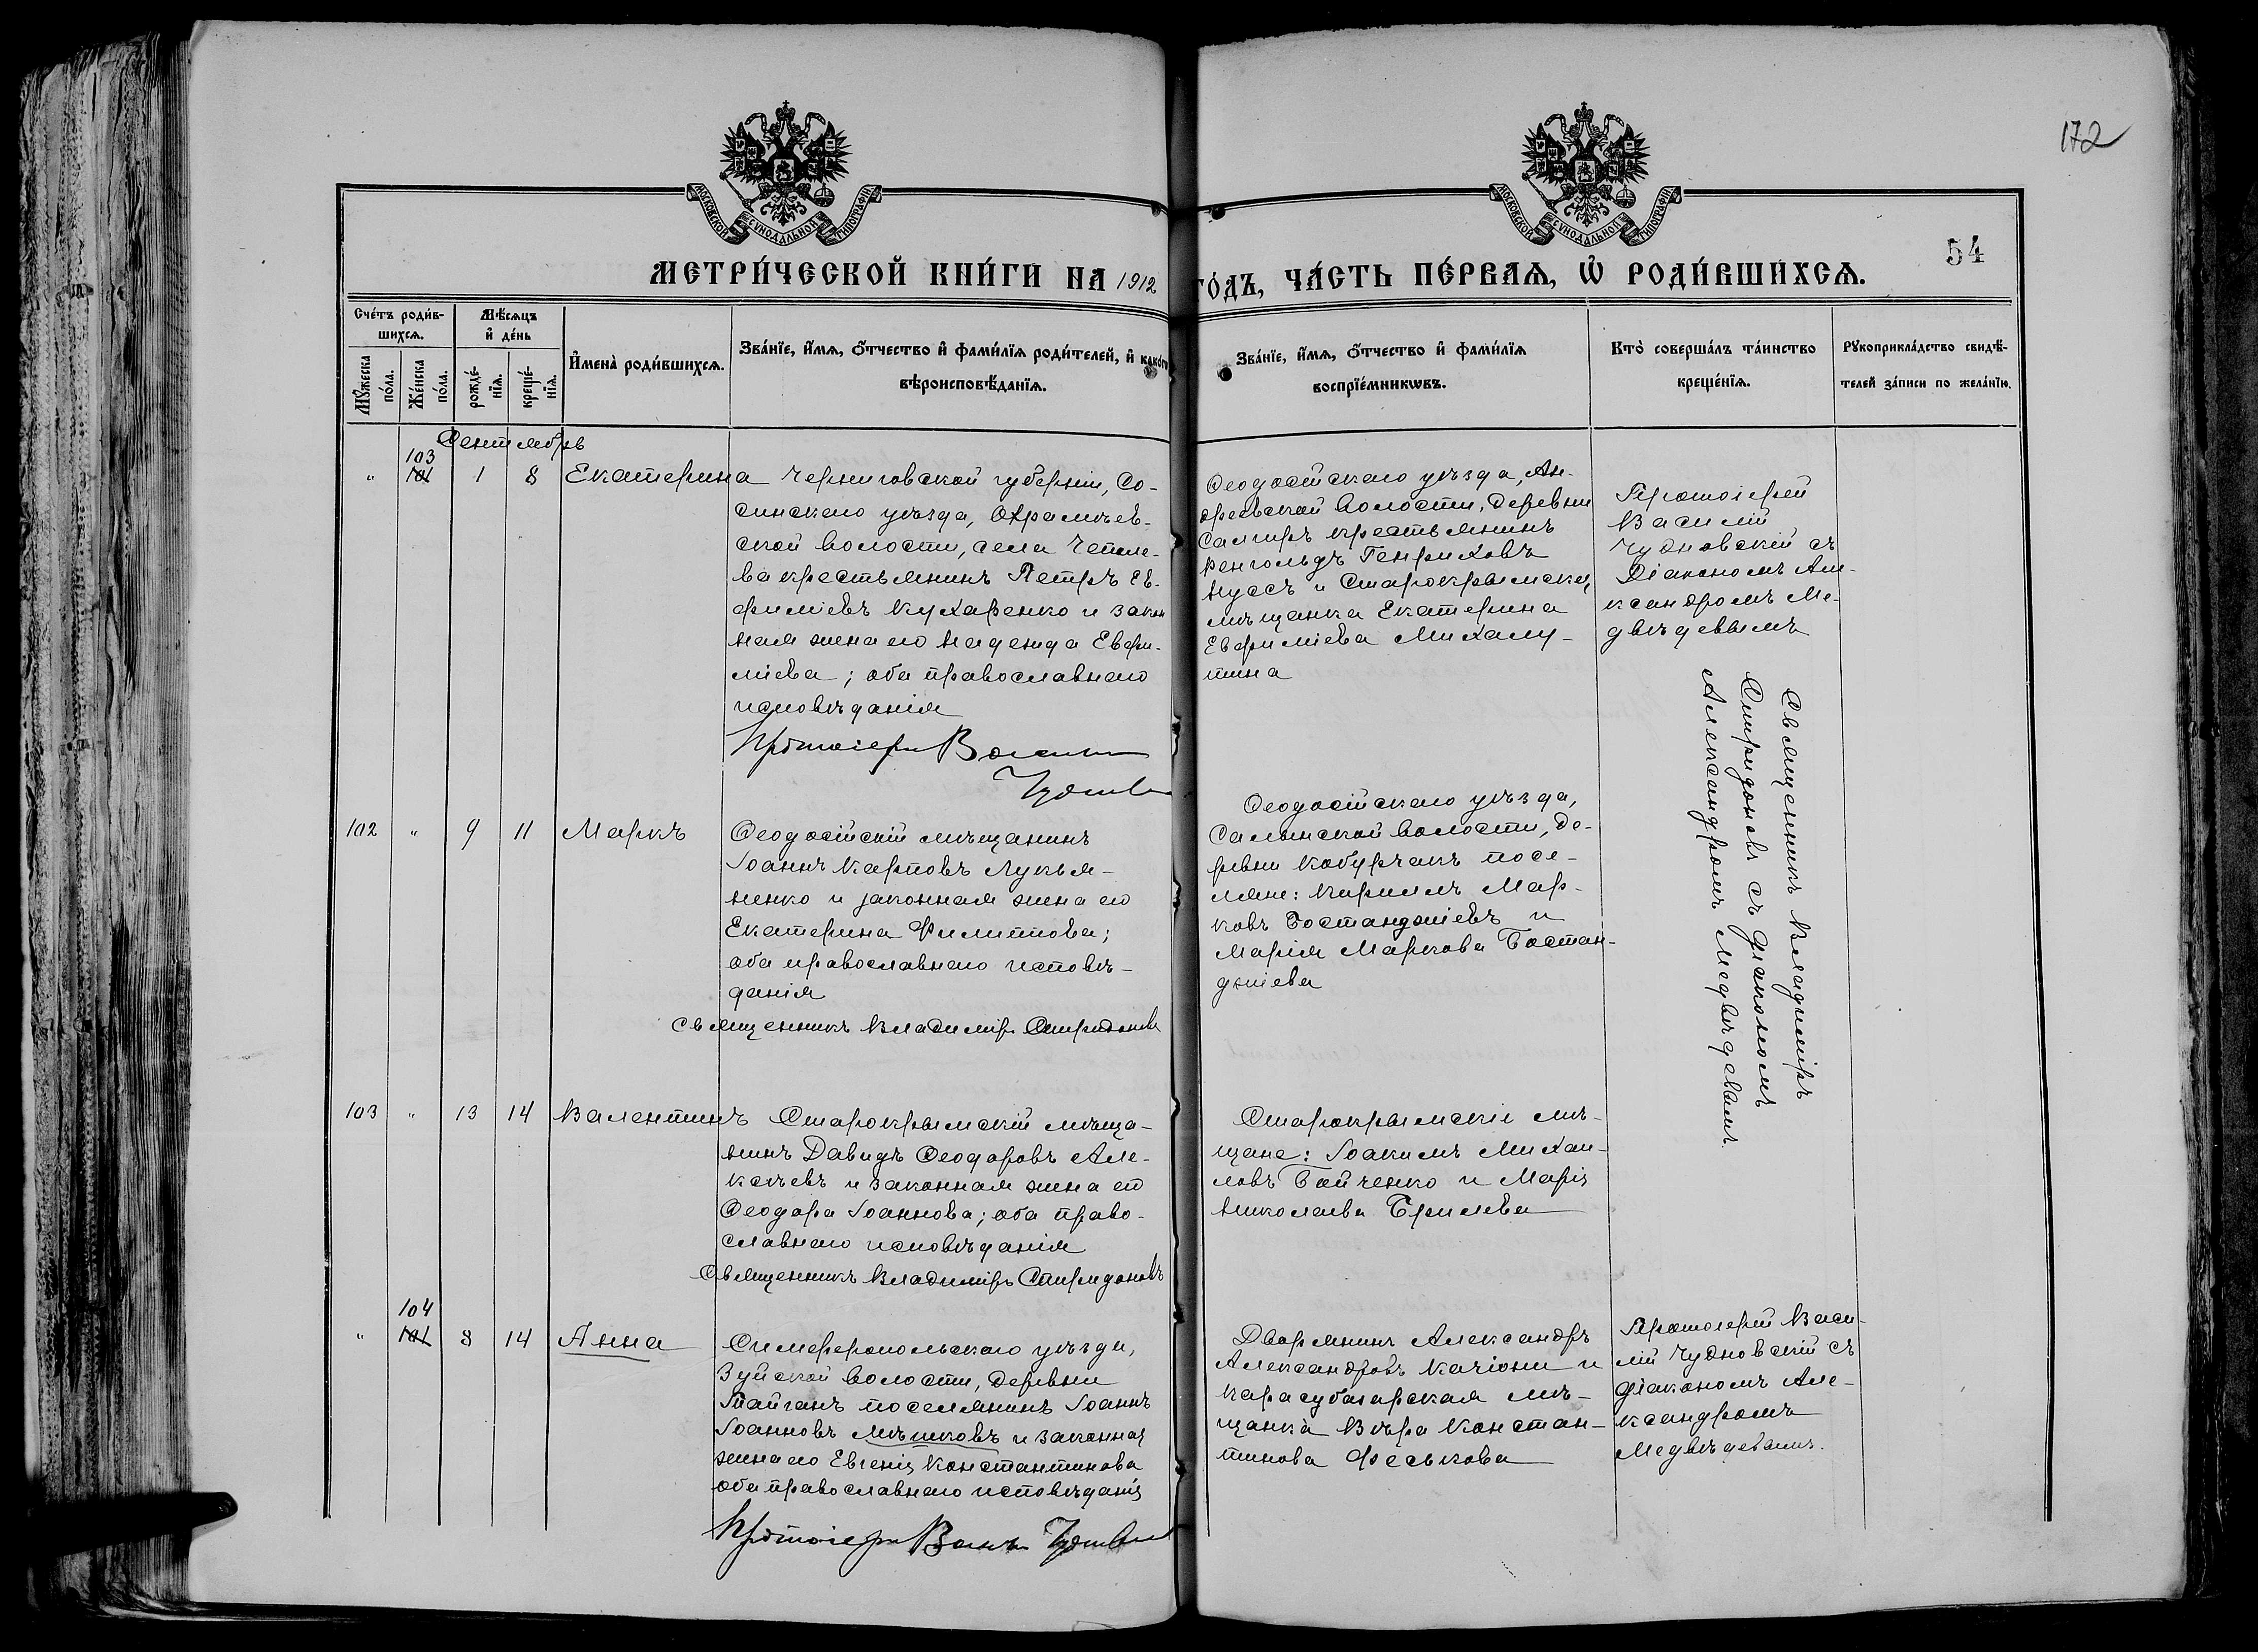 172
МОСКОВСКОЙ СѴНОДАЛЬНОЙ ТИПОГРАФІИ
МОСКОВСКОЙ СѴНОДАЛЬНОЙ ТИПОГРАФІИ
54
МЕТРИ́ЧЕСКОЙ КНИ́ГИ НА 1912 ГО́ДЪ, ЧА́СТЬ ПЕ́РВАЯ, Ѡ҆ РОДИ́ВШИХСЯ.
Сче́тъ роди́в-
шихся.
Мѣ́сяцъ
и҆ де́нь
Мꙋ́жеска
по́ла.
Же́нска
по́ла.
рожде́-
нїя.
креще́-
нїя.
И҆мена̀ роди́вшихся.
Зва́нїе, и҆́мя, ѻ҆́тчество и҆ фами́лїя роди́телей, и҆ како́гѡ
вѣроисповѣ́данїя.
Зва́нїе, и҆́мя, ѻ҆́тчество и҆ фами́лїя
воспрїе́мникѡвъ.
Кто̀ соверша́лъ та́инство
креще́нїя.
Рꙋкоприкла́дство свидѣ́-
телей за́писи по жела́нїю.
Сентябрь
103
" 101 1 8 Екатерина
Черниговской губерніи, Со-
синскаго уѣзда, Охрамѣев-
ской волости, села
крестьянинъ Петръ Ев-
фиміевъ Кухаренко и закон
ная жена его Надежда Евфи-
міева; оба православнаго
исповѣданія
Протоіерей Василій
Чудновскій
Ѳеодосійскаго уѣзда, Ан-
дреевской волости, деревни
Салгиръ крестьянинъ
Ренгольдъ Генриховъ
Нуссъ и Старокрымская
мѣщанка Екатерина
Евфиміева Михалу-
тина
Протоіерей
Василій
Чудновскій съ
Діакономъ Але-
ксандромъ Ме-
двѣдевымъ
102 " 9 11 Маркъ
Ѳеодосійскій мѣщанинъ
Іоаннъ Карповъ Лукья-
ненко и законная жена его
Екатерина Филиппова;
оба православнаго исповѣ-
данія
Священникъ Владиміръ Спиридоновъ
Ѳеодосійскаго уѣзда,
Салынской волости, де-
ревни Кобурчакъ посе-
ляне: Кириллъ Мар-
ковъ Бостанджіевъ и
Марія Маркова Бостан-
джіева
Священникъ Владиміръ
Спиридоновъ съ діакономъ
Александромъ Медвѣдевымъ.
103 " 13 14 Валентинъ
Старокрымскій мѣща-
нинъ Давидъ Ѳеодоровъ Але-
ксѣевъ и законная жена его
Ѳеодора Іоаннова; оба право-
славнаго исповѣданія
Священникъ Владиміръ Спиридоновъ
Старокрымскіе мѣ-
щане: Іоакимъ Михаи-
ловъ Бойченко и Марія
Николаева Брилева
104
" 101 8 14 Анна
Симферопольскаго уѣзда,
Зуйской волости, деревни
Тайганъ поселянинъ Іоаннъ
Іоанновъ Мѣшковъ и законная
жена его Евгенія Константинова
оба православнаго исповѣданія
Протоіерей Василій Чудновскій
Дворянинъ Александръ
Александровъ Качіони и
Карасубазарская мѣ-
щанка Вѣра Констан-
тинова Феськова
Протоіерей Васи-
лій Чудновскій съ
діакономъ Але-
ксандромъ
Медвѣдевымъ.